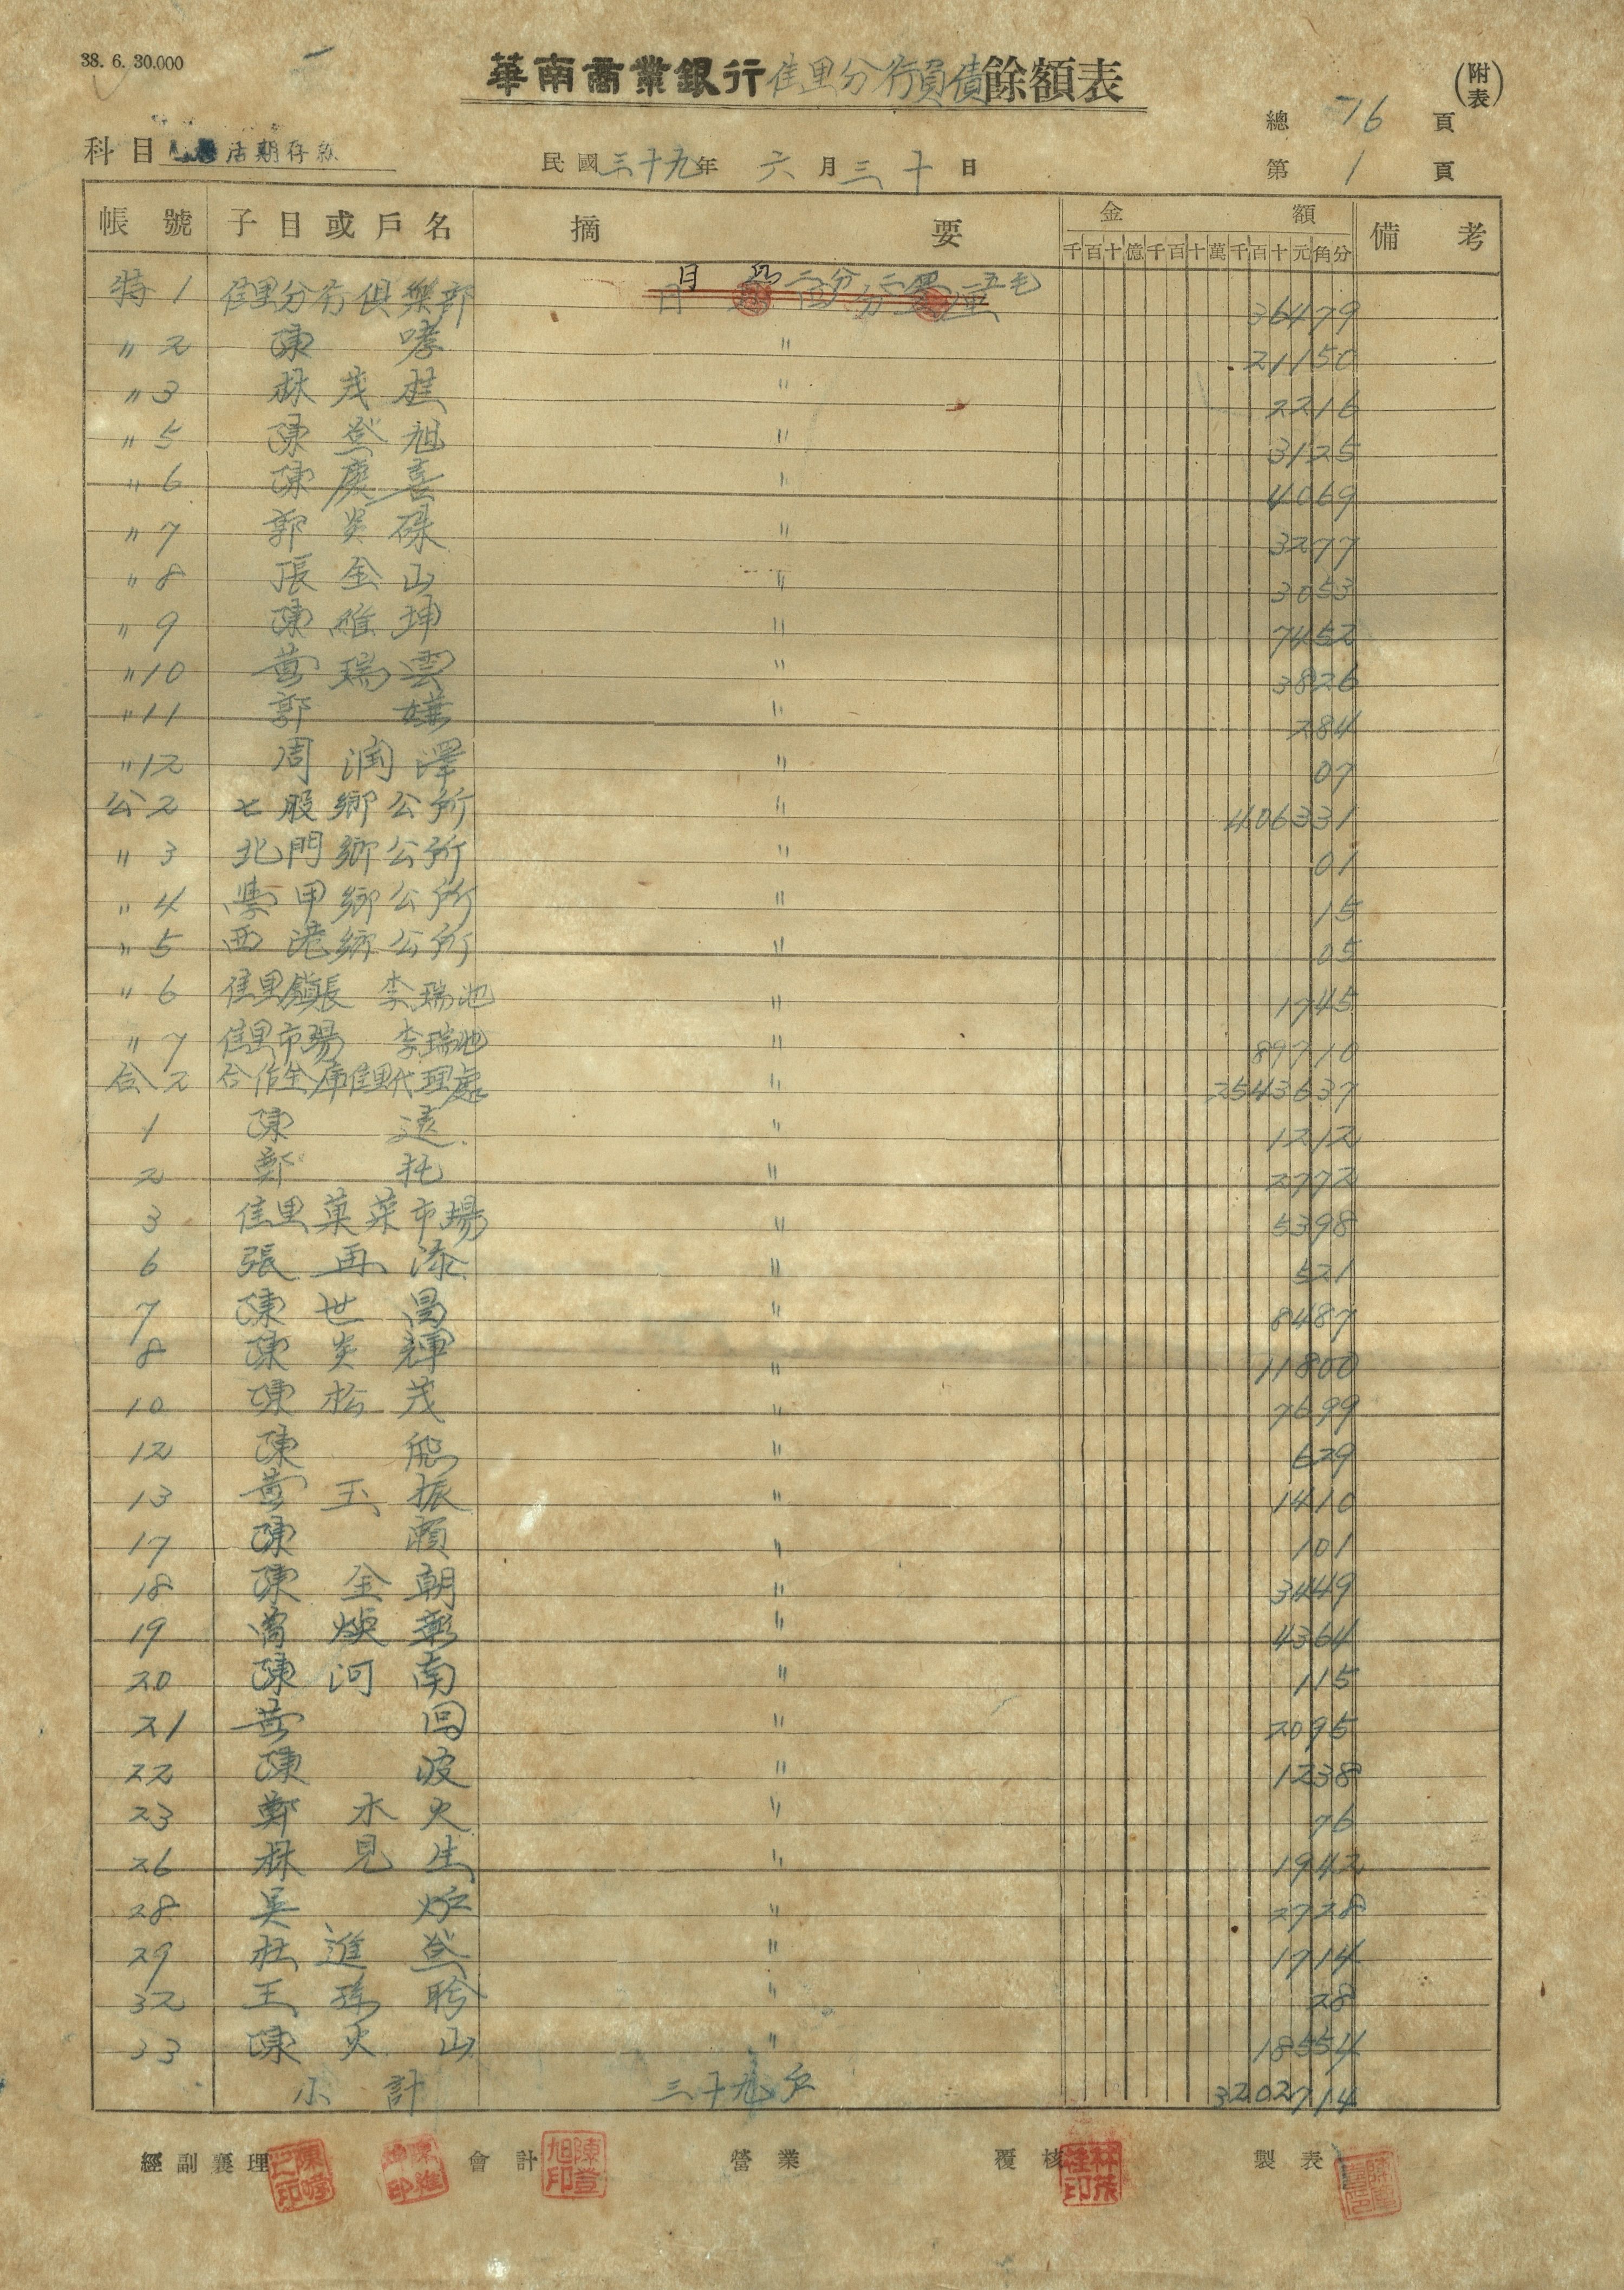 38. 6. 30.000
華南商業銀行佳里分行負債餘額表
(附表)
總 76 頁
科目 活期存款
民國三十九年 六月三十日
第 1 頁
帳號 子目或戶名 摘要 金額 備考
千百十億千百十萬千百十元角分
特1 佳里分行俱樂部 日 二分二厘五毛 36479
〃2 陳 哮 〃 21150
〃3 林茂桂 〃 2216
〃5 陳登旭 〃 3125
〃6 陳慶喜 〃 4069
〃7 郭炎碌 〃 3277
〃8 張金山 〃 3053
〃9 陳維坤 〃 7452
〃10 黃瑞雲 〃 3826
〃11 郭 〃 284
〃12 周潤澤 〃 07
公2 七股鄉公所 〃 406331
〃3 北門鄉公所 〃 01
〃4 學甲鄉公所 〃 15
〃5 西港鄉公所 〃 05
〃6 佳里鎮長 李瑞池 〃 1745
〃7 佳里市場 李瑞池 〃 89710
合2 合作金庫佳里代理處 〃 2543637
1 陳 遠 〃 1212
2 鄭 托 〃 2772
3 佳里菓菜市場 〃 5398
6 張再添 〃 521
7 陳世昌 〃 8487
8 陳炎輝 〃 11800
10 陳松茂 〃 7699
12 陳 〃 629
13 黃玉振 〃 1410
17 陳 〃 101
18 陳金朝 〃 3449
19 曾煥彰 〃 4364
20 陳河南 〃 115
21 黃 回 〃 2095
22 陳 波 〃 1238
23 鄭水火 〃 76
26 林見生 〃 1942
28 吳 炉 〃 2728
29 杜進登 〃 1714
32 王 〃 28
33 陳火山 〃 18554
小計 三十九戶 3202714
經副襄理 會計 營業 覆核 製表
陳登旭印
林茂桂印